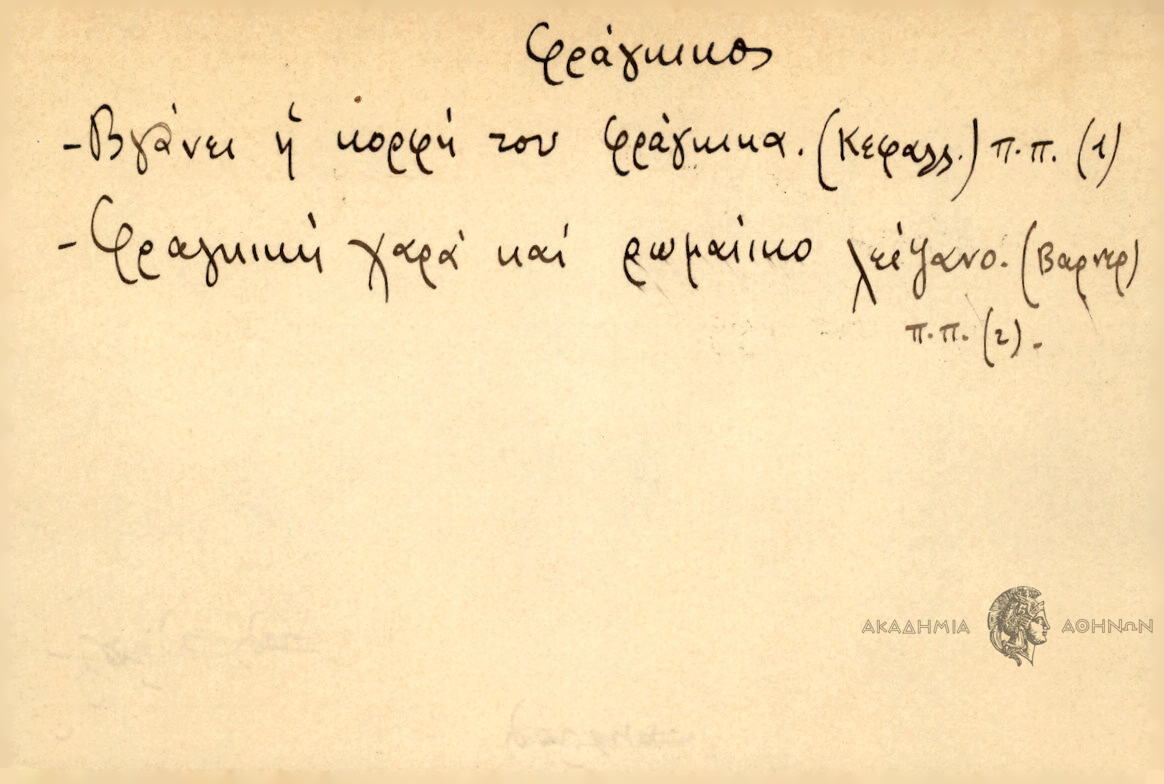 Φράγκικος
- Βγάνει ἡ κορφή του φράγκικα. (Κεφαλλ.) π.π. (1)
- Φραγκική χαρά καί ρωμαίικο λείψανο. (Βαρνερ)
π.π. (2).
ΑΚΑΔΗΜΙΑ ΑΘΗΝΩΝ